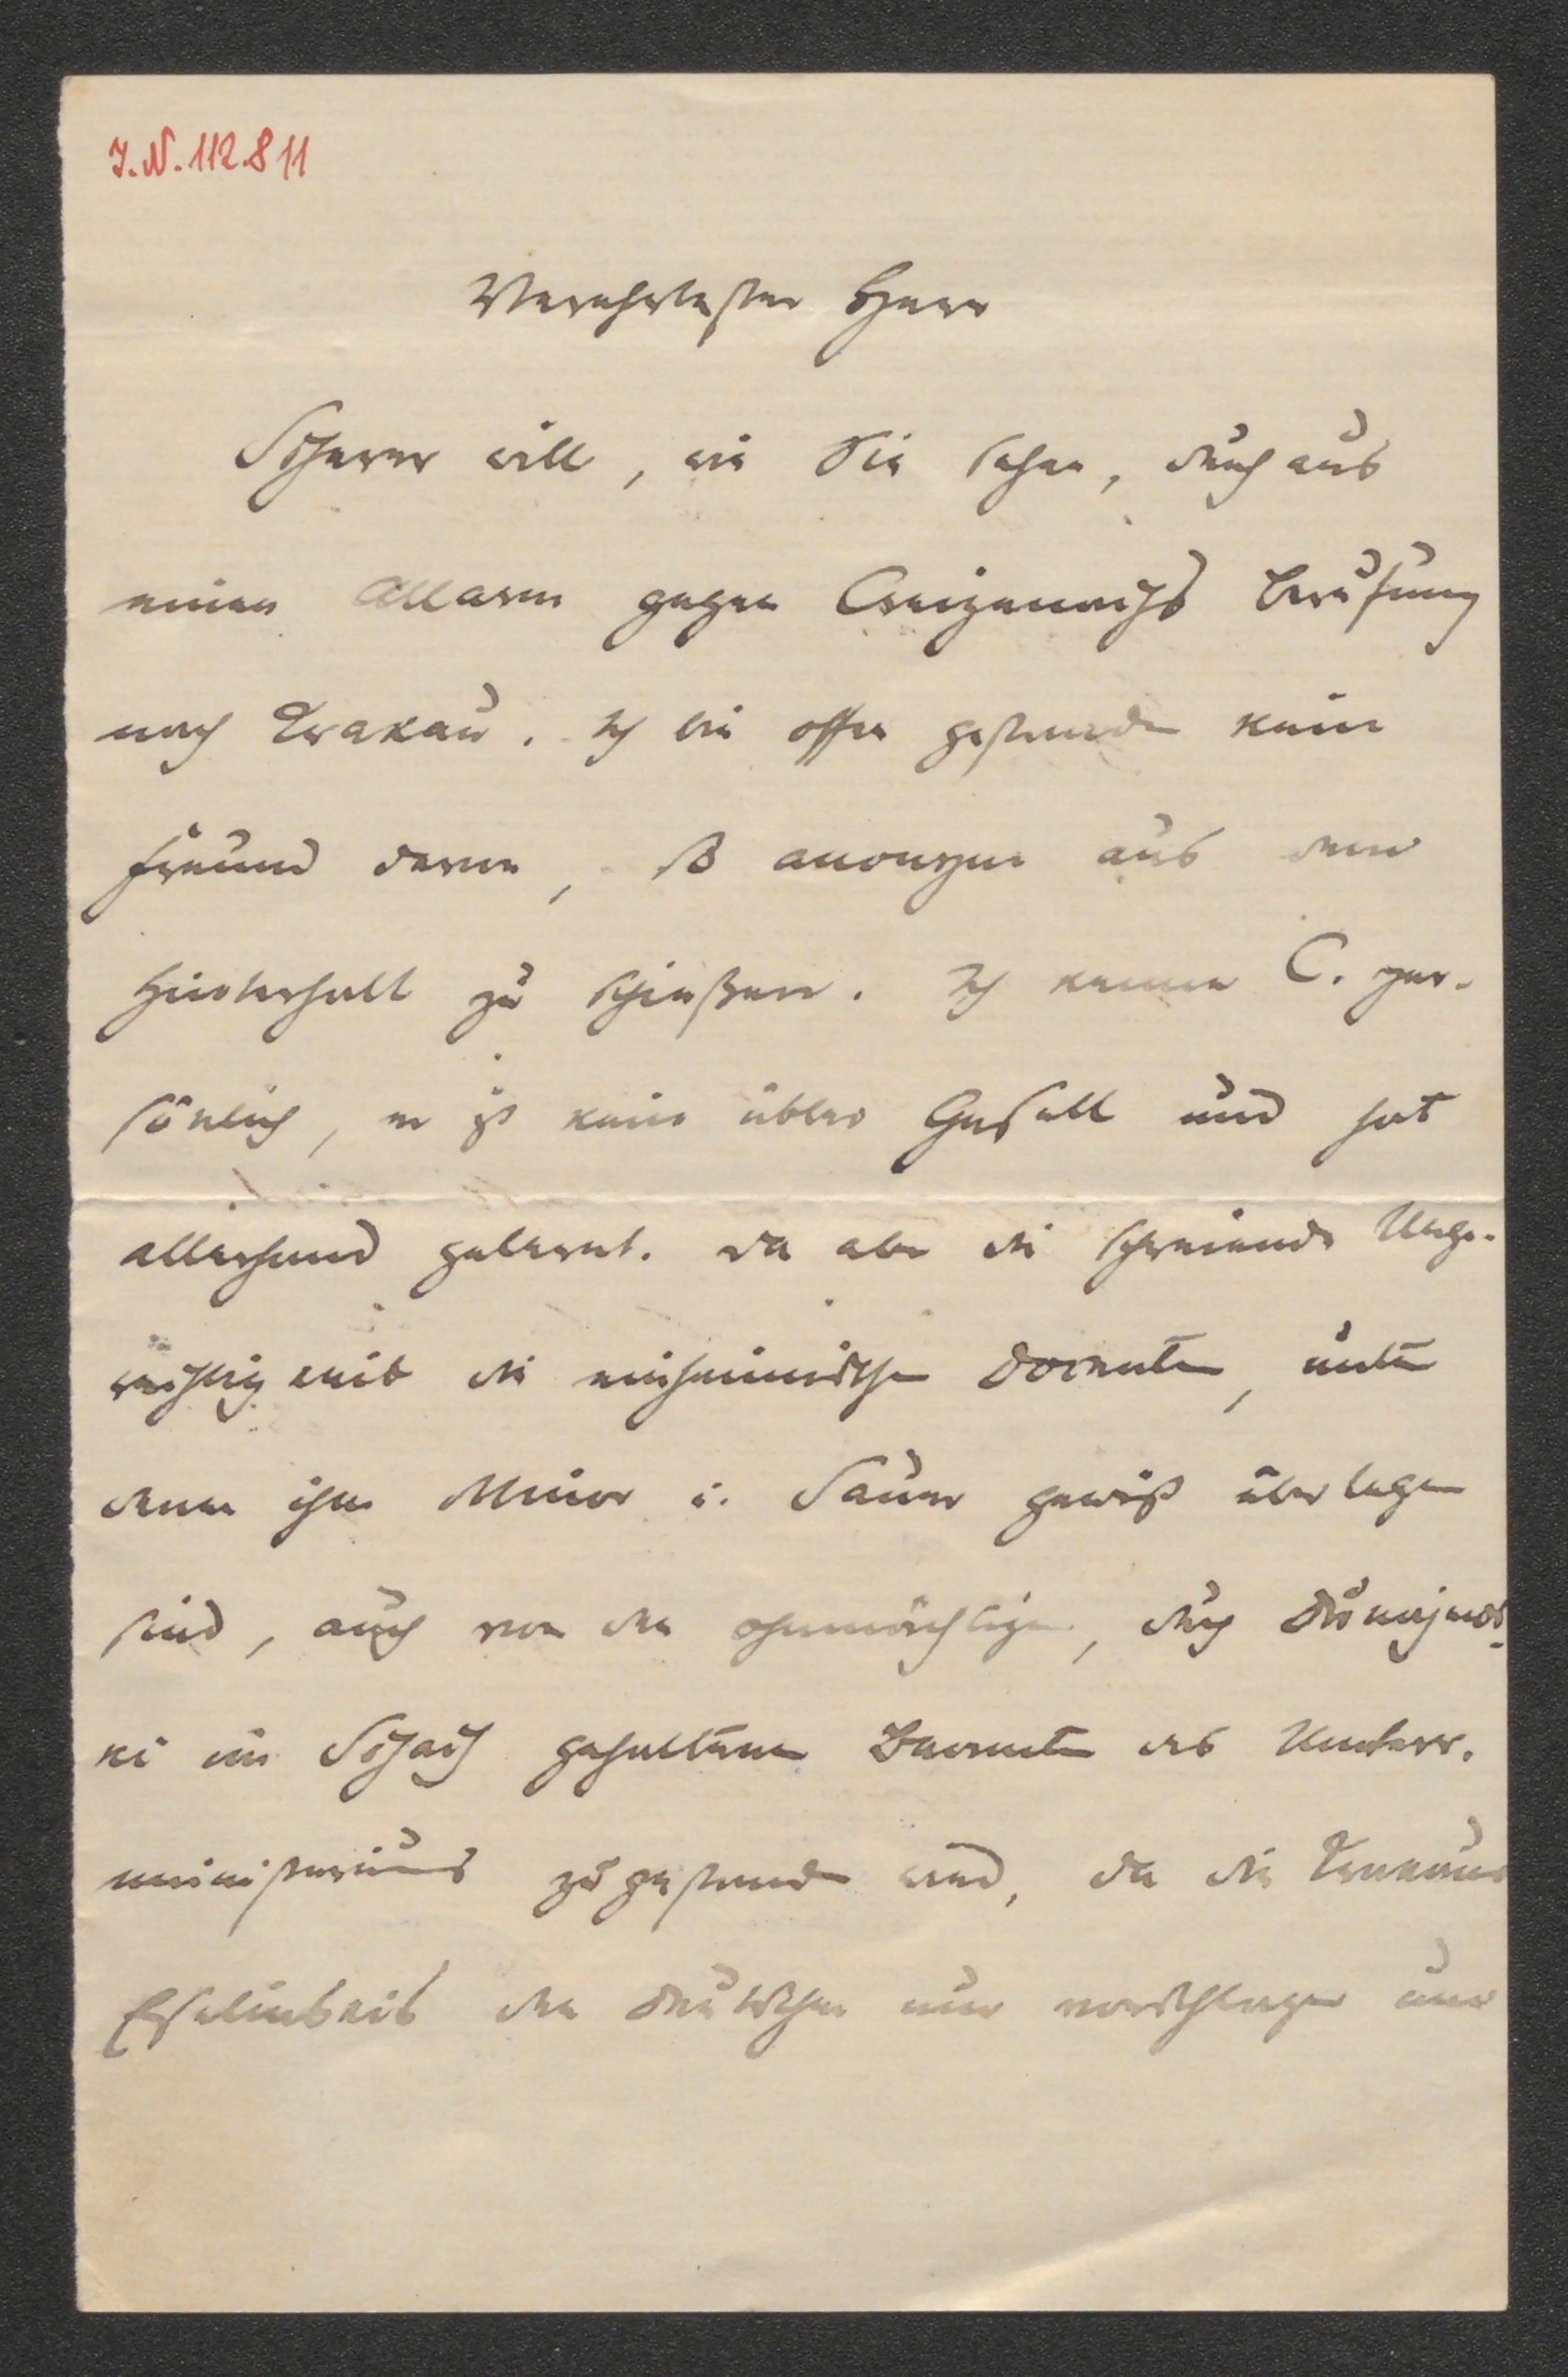 J.N. 112.811
Verehrtester Herr
Scherer will, wie Sie sehen, durchaus
einen Allarm gegen Creizenachs Berufung
nach Krakau. Ich bin offen gestanden kein
Freund davon, so anonym aus dem
Hinterhalt zu schießen. Ich kenne C. per-
sönlich, er ist kein übler Gesell und hat
allerhand gelernt. Da aber die schreiende Unge-
rechtigkeit die einheimischen Docenten, unter
denen ihm Minor u. Sauer gewiß überlegen
sind, auch von den ohnmächtigen, durch Dunajews-
ki im Schach gehaltenen Beamten des Unterr.
ministeriums zugestanden wird, da die Krakauer
den Deutschen nur vorschlagen um